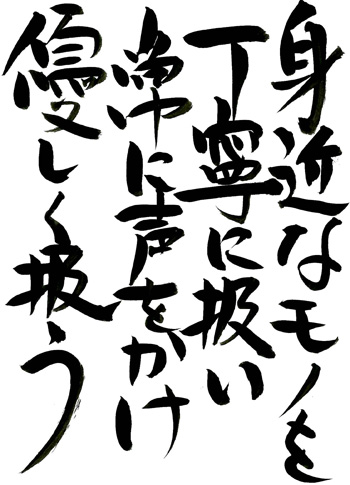 身近なモノを
丁寧に扱い
常に声をかけ
優しく扱う